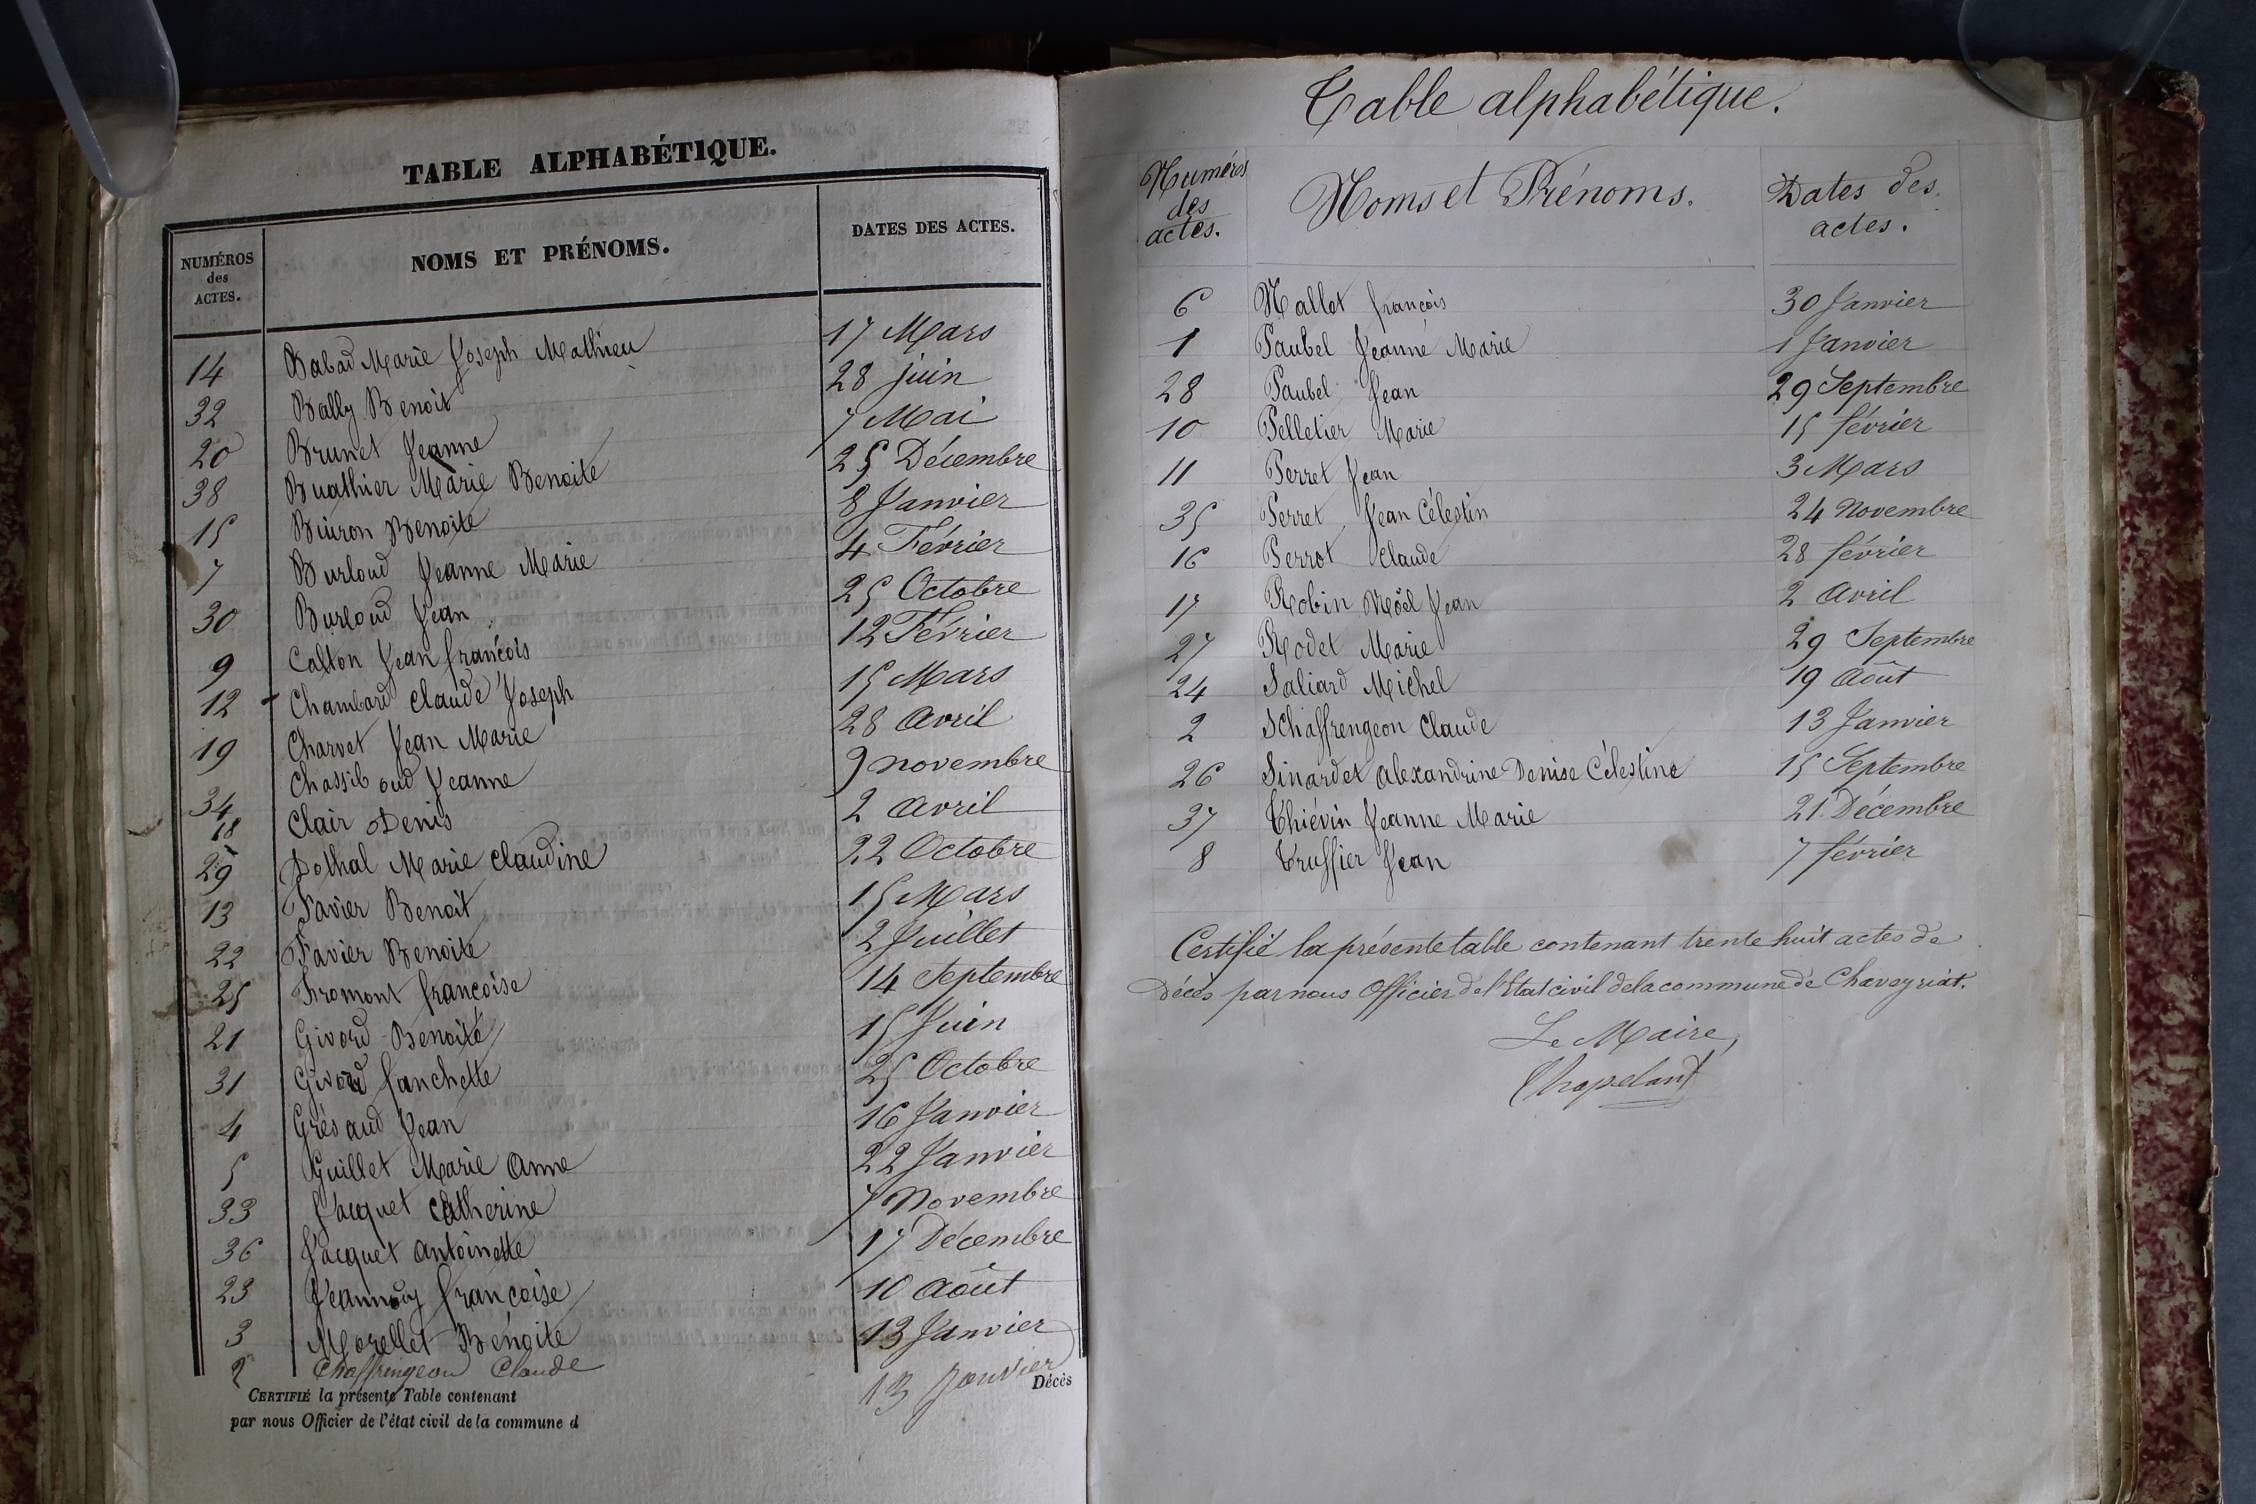 TABLE ALPHABÉTIQUE.
NUMÉROS
des
ACTES.
NOMS ET PRÉNOMS.
DATES DES ACTES.
14 Babad Marie Joseph Mathieu 17 Mars
32 Bally Benoit 28 juin
20 Brunet Jeanne 7 Mai
38 Buathier Marie Benoite 25 Décembre
15 Buiron Benoite 8 Janvier
7 Burloud Jeanne Marie 4 Février
30 Burloud Jean 25 Octobre
9 Calton Jean françois 12 Février
12 Chambard Claude Joseph 15 Mars
19 Charvet Jean Marie 28 avril
34 Chassiboud Jeanne 9 novembre
18 Clair Denis 2 avril
29 Dothal Marie Claudine 22 Octobre
13 Favier Benoit 15 Mars
22 Favier Benoite 2 Juillet
25 Fromont françoise 14 Septembre
21 Givord Benoite 15 Juin
31 Givord fanchette 25 Octobre
4 Grésaud Jean 16 Janvier
5 Guillet Marie Anne 22 Janvier
33 Jacquet Catherine 7 Novembre
36 Jacquet antoinette 17 Décembre
23 Jeannouy françoise 10 août
3 Morellet Benoite 13 Janvier
2 Chaffringeon Claude 13 Janvier
Décès
CERTIFIÉ la présente Table contenant
par nous Officier de l'état civil de la commune d
Table alphabétique.
Numéros
des
actes.
Noms et Prénoms.
Dates des
actes.
6 Nallet françois 30 Janvier
1 Paubel Jeanne Marie 1 Janvier
28 Paubel Jean 29 Septembre
10 Pelletier Marie 15 février
11 Perret Jean 3 Mars
35 Perret Jean Célestin 24 Novembre
16 Perrot Claude 28 février
17 Robin Noël Jean 2 avril
27 Rodet Marie 29 Septembre
24 Saliard Michel 19 août
2 Schaffrengeon Claude 13 Janvier
26 Sinardet alexandrine Denise Célestine 15 Septembre
37 Thiévin Jeanne Marie 21 Décembre
8 Truffier Jean 7 février
Certifié la présente table contenant trente huit actes de
Décès par nous Officier de l'Etat civil de la commune de Chaveyriat.
Le Maire,
Chapeland